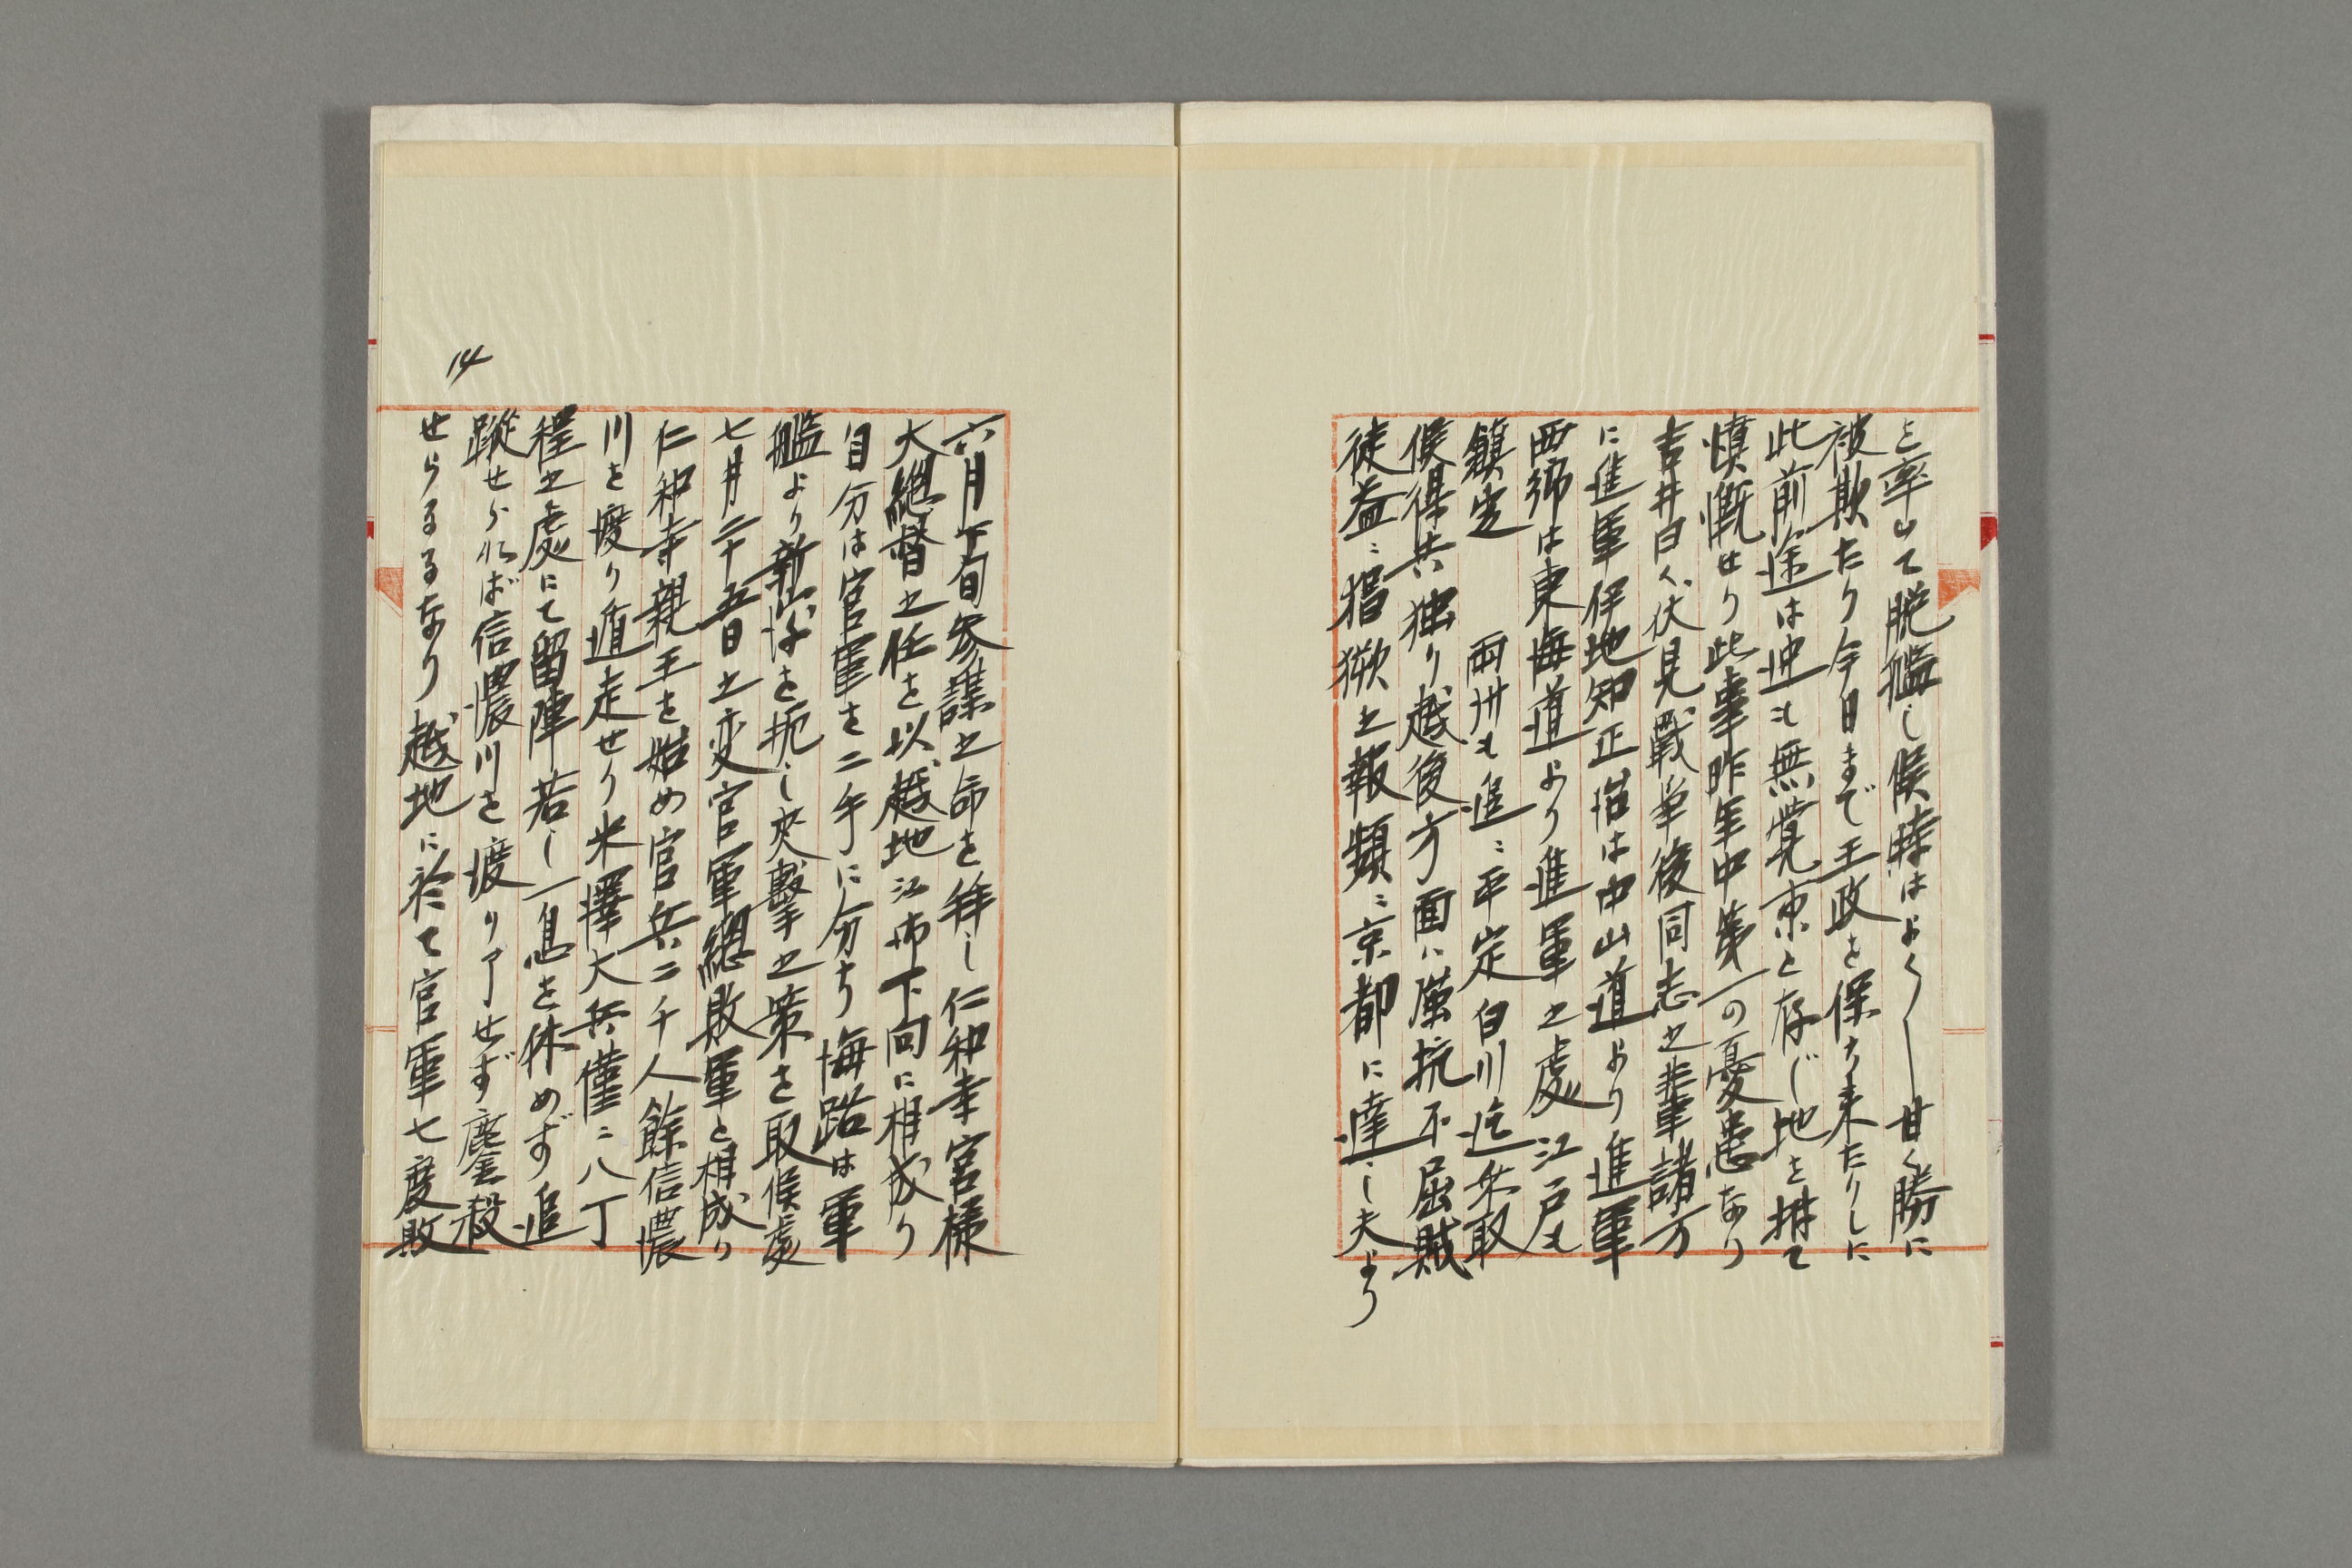 を率ゐて脱艦し候時はよく〳〵甘く勝に
被欺たり今日まで王政を保ち来たりしに
此前途は迚も無覚束と存じ地を搏て
憤慨せり此事昨年中第一の憂患なり
吉井曰く伏見戦争後同志之輩諸方
に進軍伊地知正治は中山道より進軍
西郷は東海道より進軍之處江戸も
鎮定 両州も追〻平定白川迄乗取
候得共独り越後方面に強抗不屈賊
徒益〻猖獗之報頻〻京都に達し夫より
六月下旬参謀之命を拝し仁和寺宮様
大總督之任を以越地江御下向に相成り
自分は官軍を二手に分ち海路は軍
艦より新潟を扼し夾撃之策を取候處
七月二十五日之変官軍總敗軍と相成り
仁和寺親王を始め官兵二千人餘信濃
川を渡り遁走せり米澤大兵僅〻八丁
程之處にて留陣若し一息を休めず追
蹤せられば信濃川を渡り了せず鏖殺
せらるるなり越地に於て官軍七度敗
14